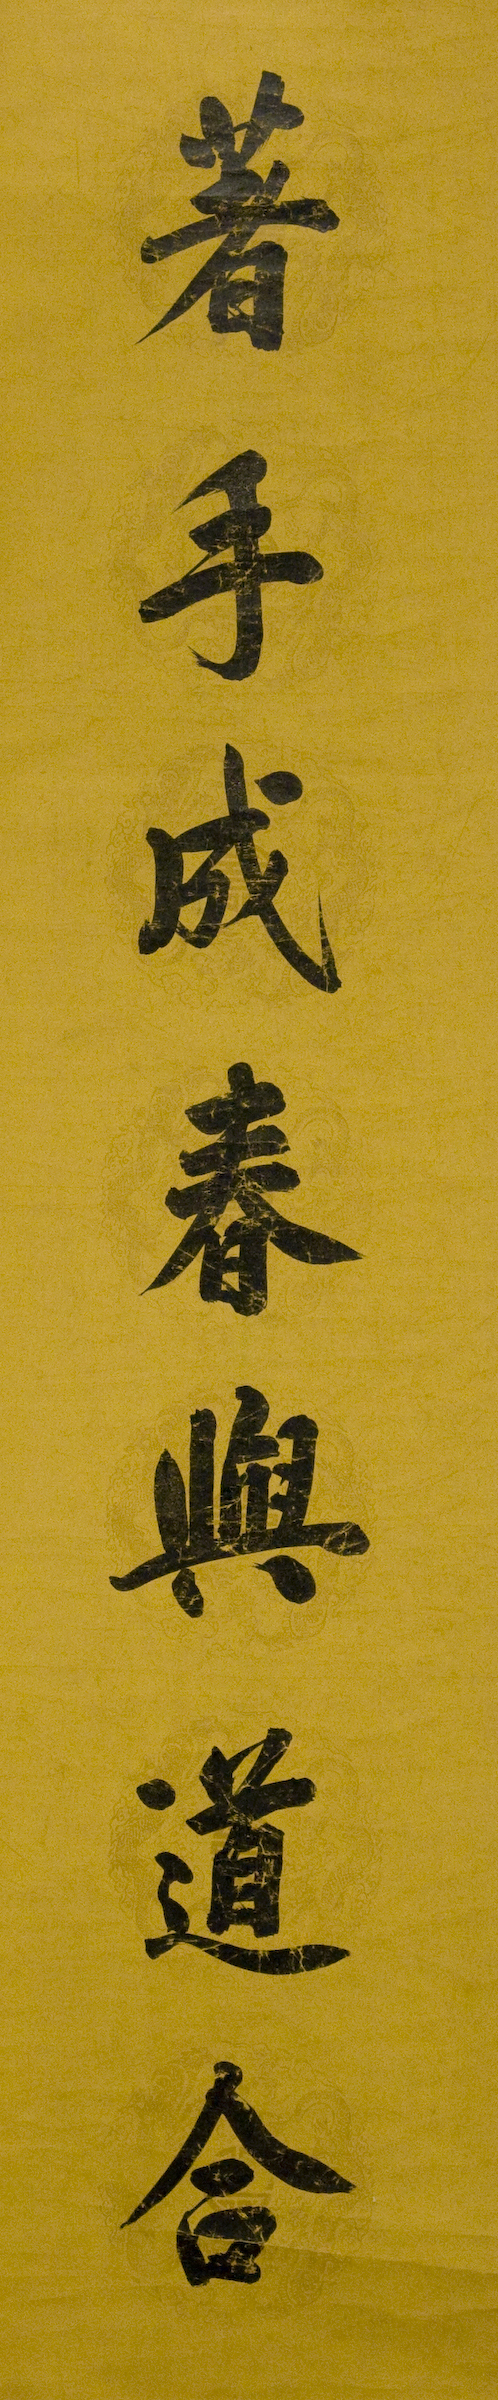 著手成春與道合